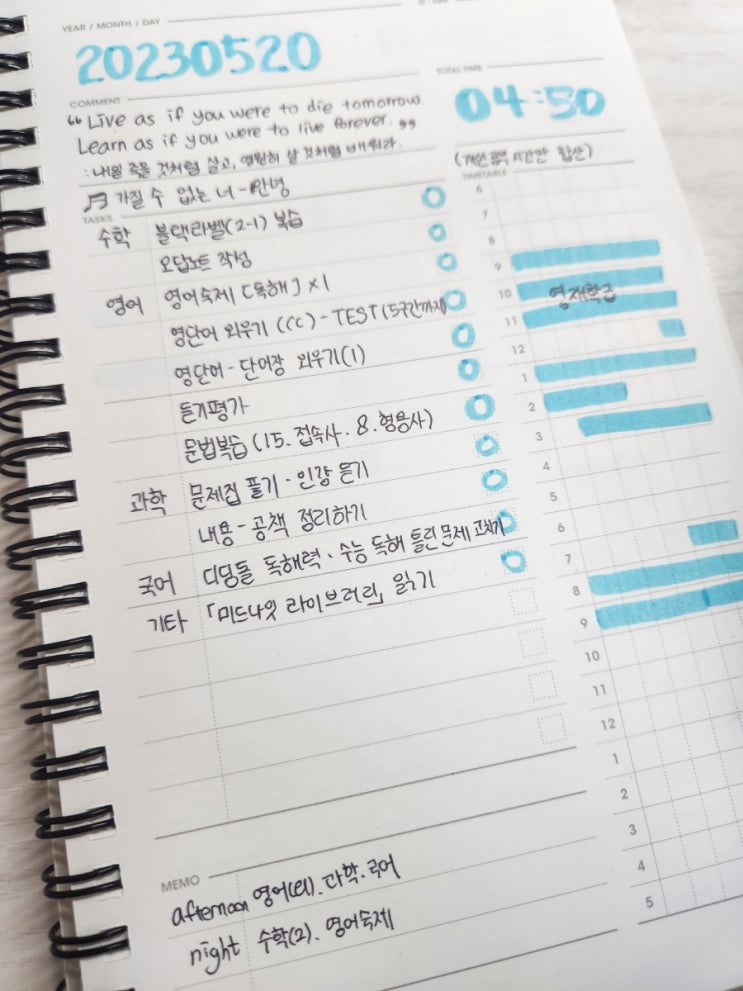 YEAR / MONTH / DAY
20230520
TOTAL TIME
04:50
COMMENT
“ Live as if you were to die tomorrow.
Learn as if you were to live forever. ”
: 내일 죽을 것처럼 살고, 영원히 살 것처럼 배워라.
♬ 가질 수 없는 너 -
(개인 공부 시간만 합산)
TASKS
수학 블랙라벨(2-1) 복습
오답노트 작성
영어 영어숙제 [독해] x1
영단어 외우기 (CC) - TEST (5구간까지)
영단어 - 단어장 외우기(1)
듣기평가
문법복습 (15. 접속사 · 8. 형용사)
과학 문제집 풀기 · 인강 듣기
내용 - 공책 정리하기
국어 디딤돌 독해력 · 수능 독해 틀린 문제 고치기
기타 「미드나잇 라이브러리」 읽기
TIMETABLE
6
7
8
9
10 영재학급
11
12
1
2
3
4
5
6
7
8
9
10
11
12
1
2
3
4
5
MEMO
afternoon 영어 . 과학 . 국어
night 수학(2) . 영어숙제